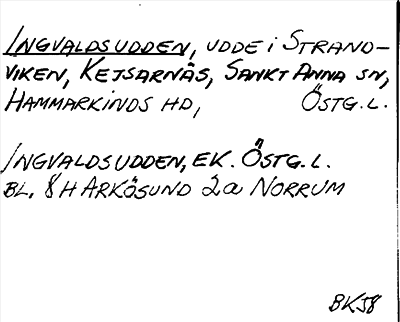 INGVALDSUDDEN, UDDE i STRAND-
VIKEN, KEJSARNÄS, SANKT ANNA SN,
HAMMARKINDS HD, ÖSTG. L.
INGVALDSUDDEN, EK. ÖSTG. L.
BL. 8H ARKÖSUND 2a NORRUM
BKJ8